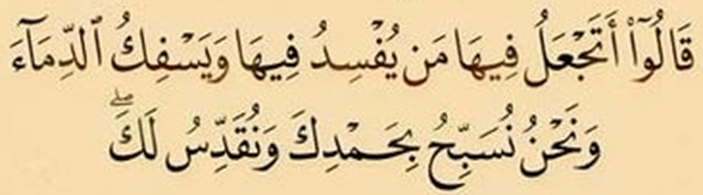 قَالُوٓا۟ أَتَجْعَلُ فِيهَا مَن يُفْسِدُ فِيهَا وَيَسْفِكُ ٱلدِّمَآءَ
وَنَحْنُ نُسَبِّحُ بِحَمْدِكَ وَنُقَدِّسُ لَكَۖ